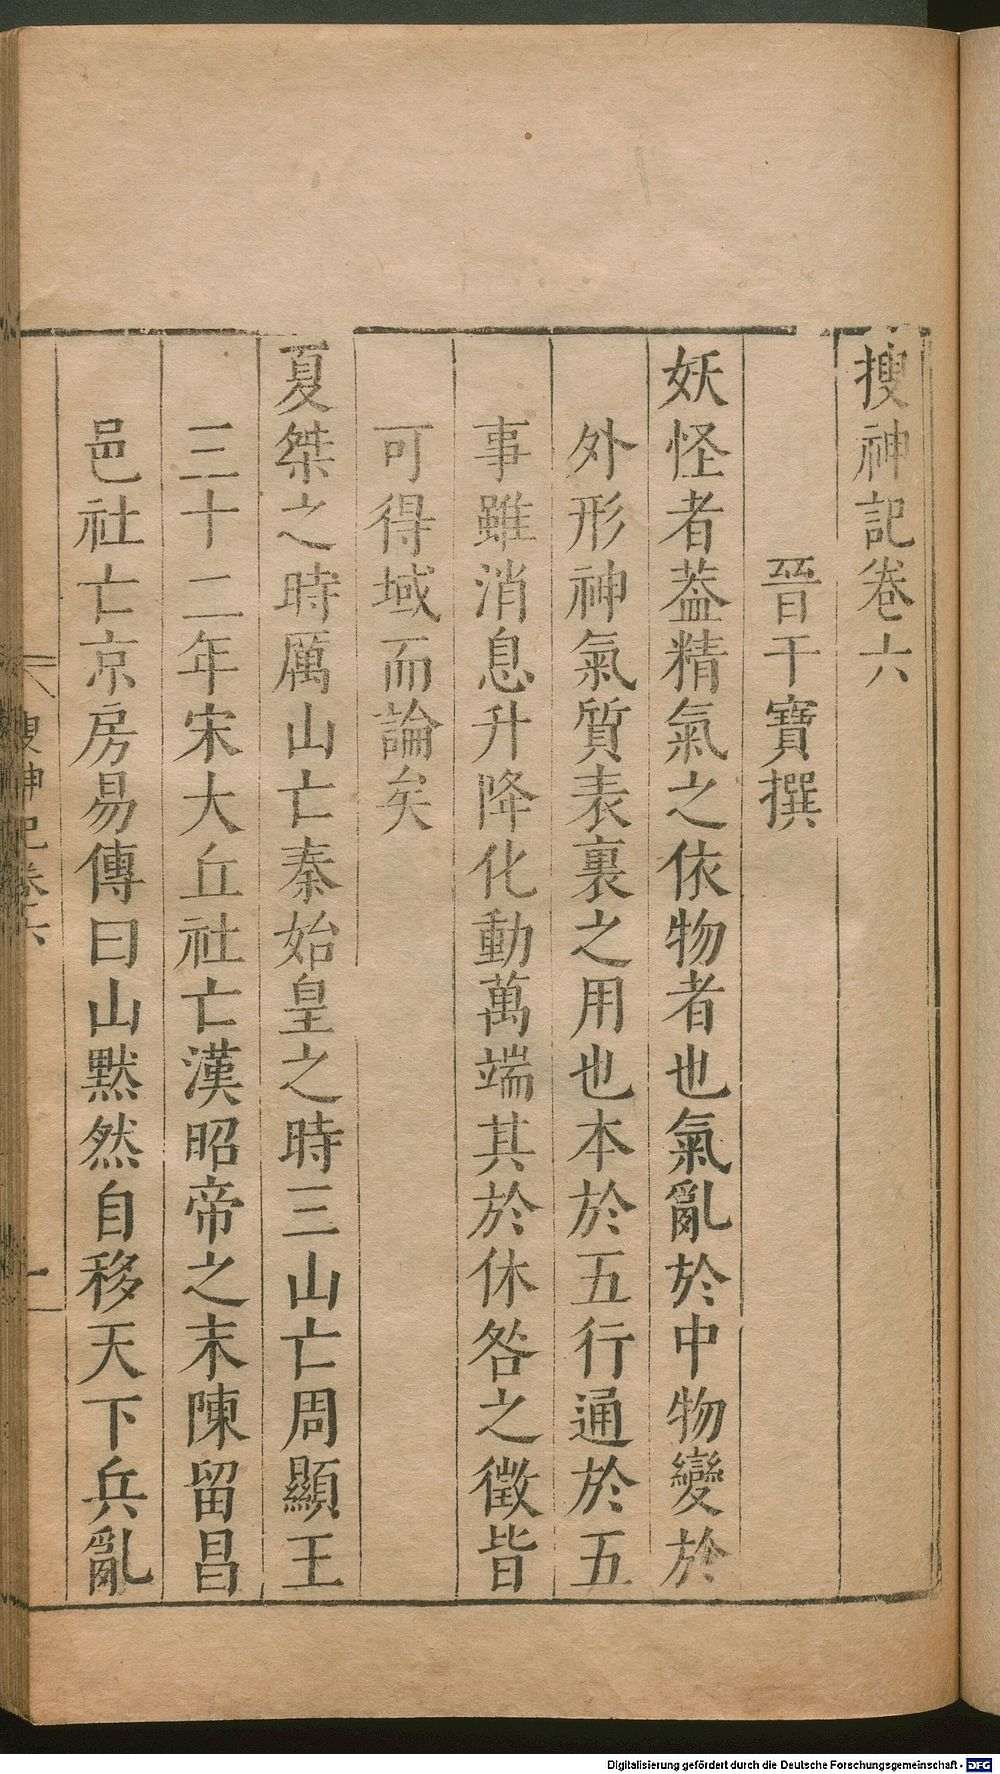 搜神記卷六
晉干寶撰
妖怪者葢精氣之依物者也氣亂於中物變於
外形神氣質表裏之用也本於五行通於五
事雖消息升降化動萬端其於休咎之徵皆
可得域而論矣
夏桀之時厲山亡秦始皇之時三山亡周顯王
三十二年宋大丘社亡漢昭帝之末陳留昌
邑社亡京房易傳曰山默然自移天下兵亂
搜神記卷六
一
Digitalisierung gefördert durch die Deutsche Forschungsgemeinschaft - DFG